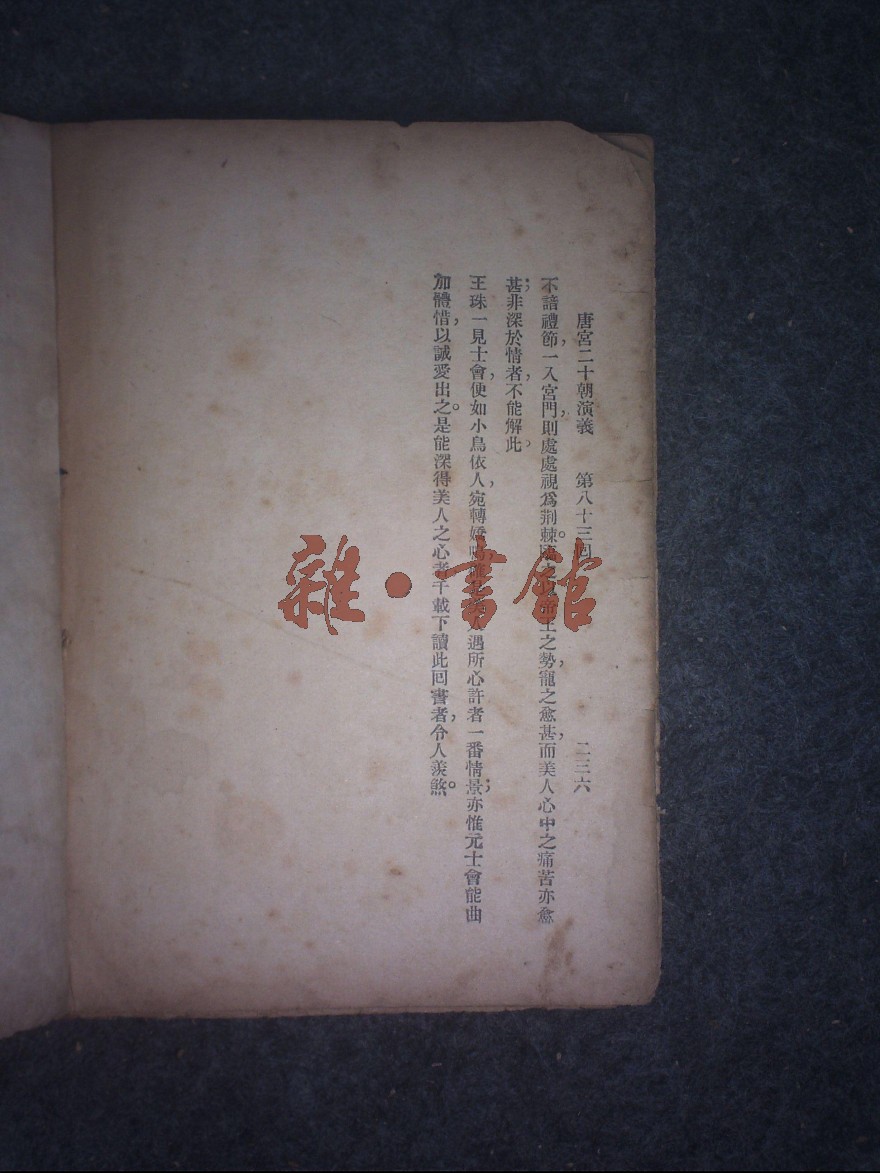 唐宮二十朝演義　第八十三回　二三六
不諳禮節，一入宮門，則處處視爲荆棘。王之勢，寵之愈甚，而美人心中之痛苦亦愈
甚；非深於情者，不能解此。
王珠一見士會，便如小鳥依人，宛轉嬌遇所心許者一番情景；亦惟元士會能曲
加體惜，以誠愛出之。是能深得美人之心者千載下讀此回書者，令人羨煞。
雜·書館